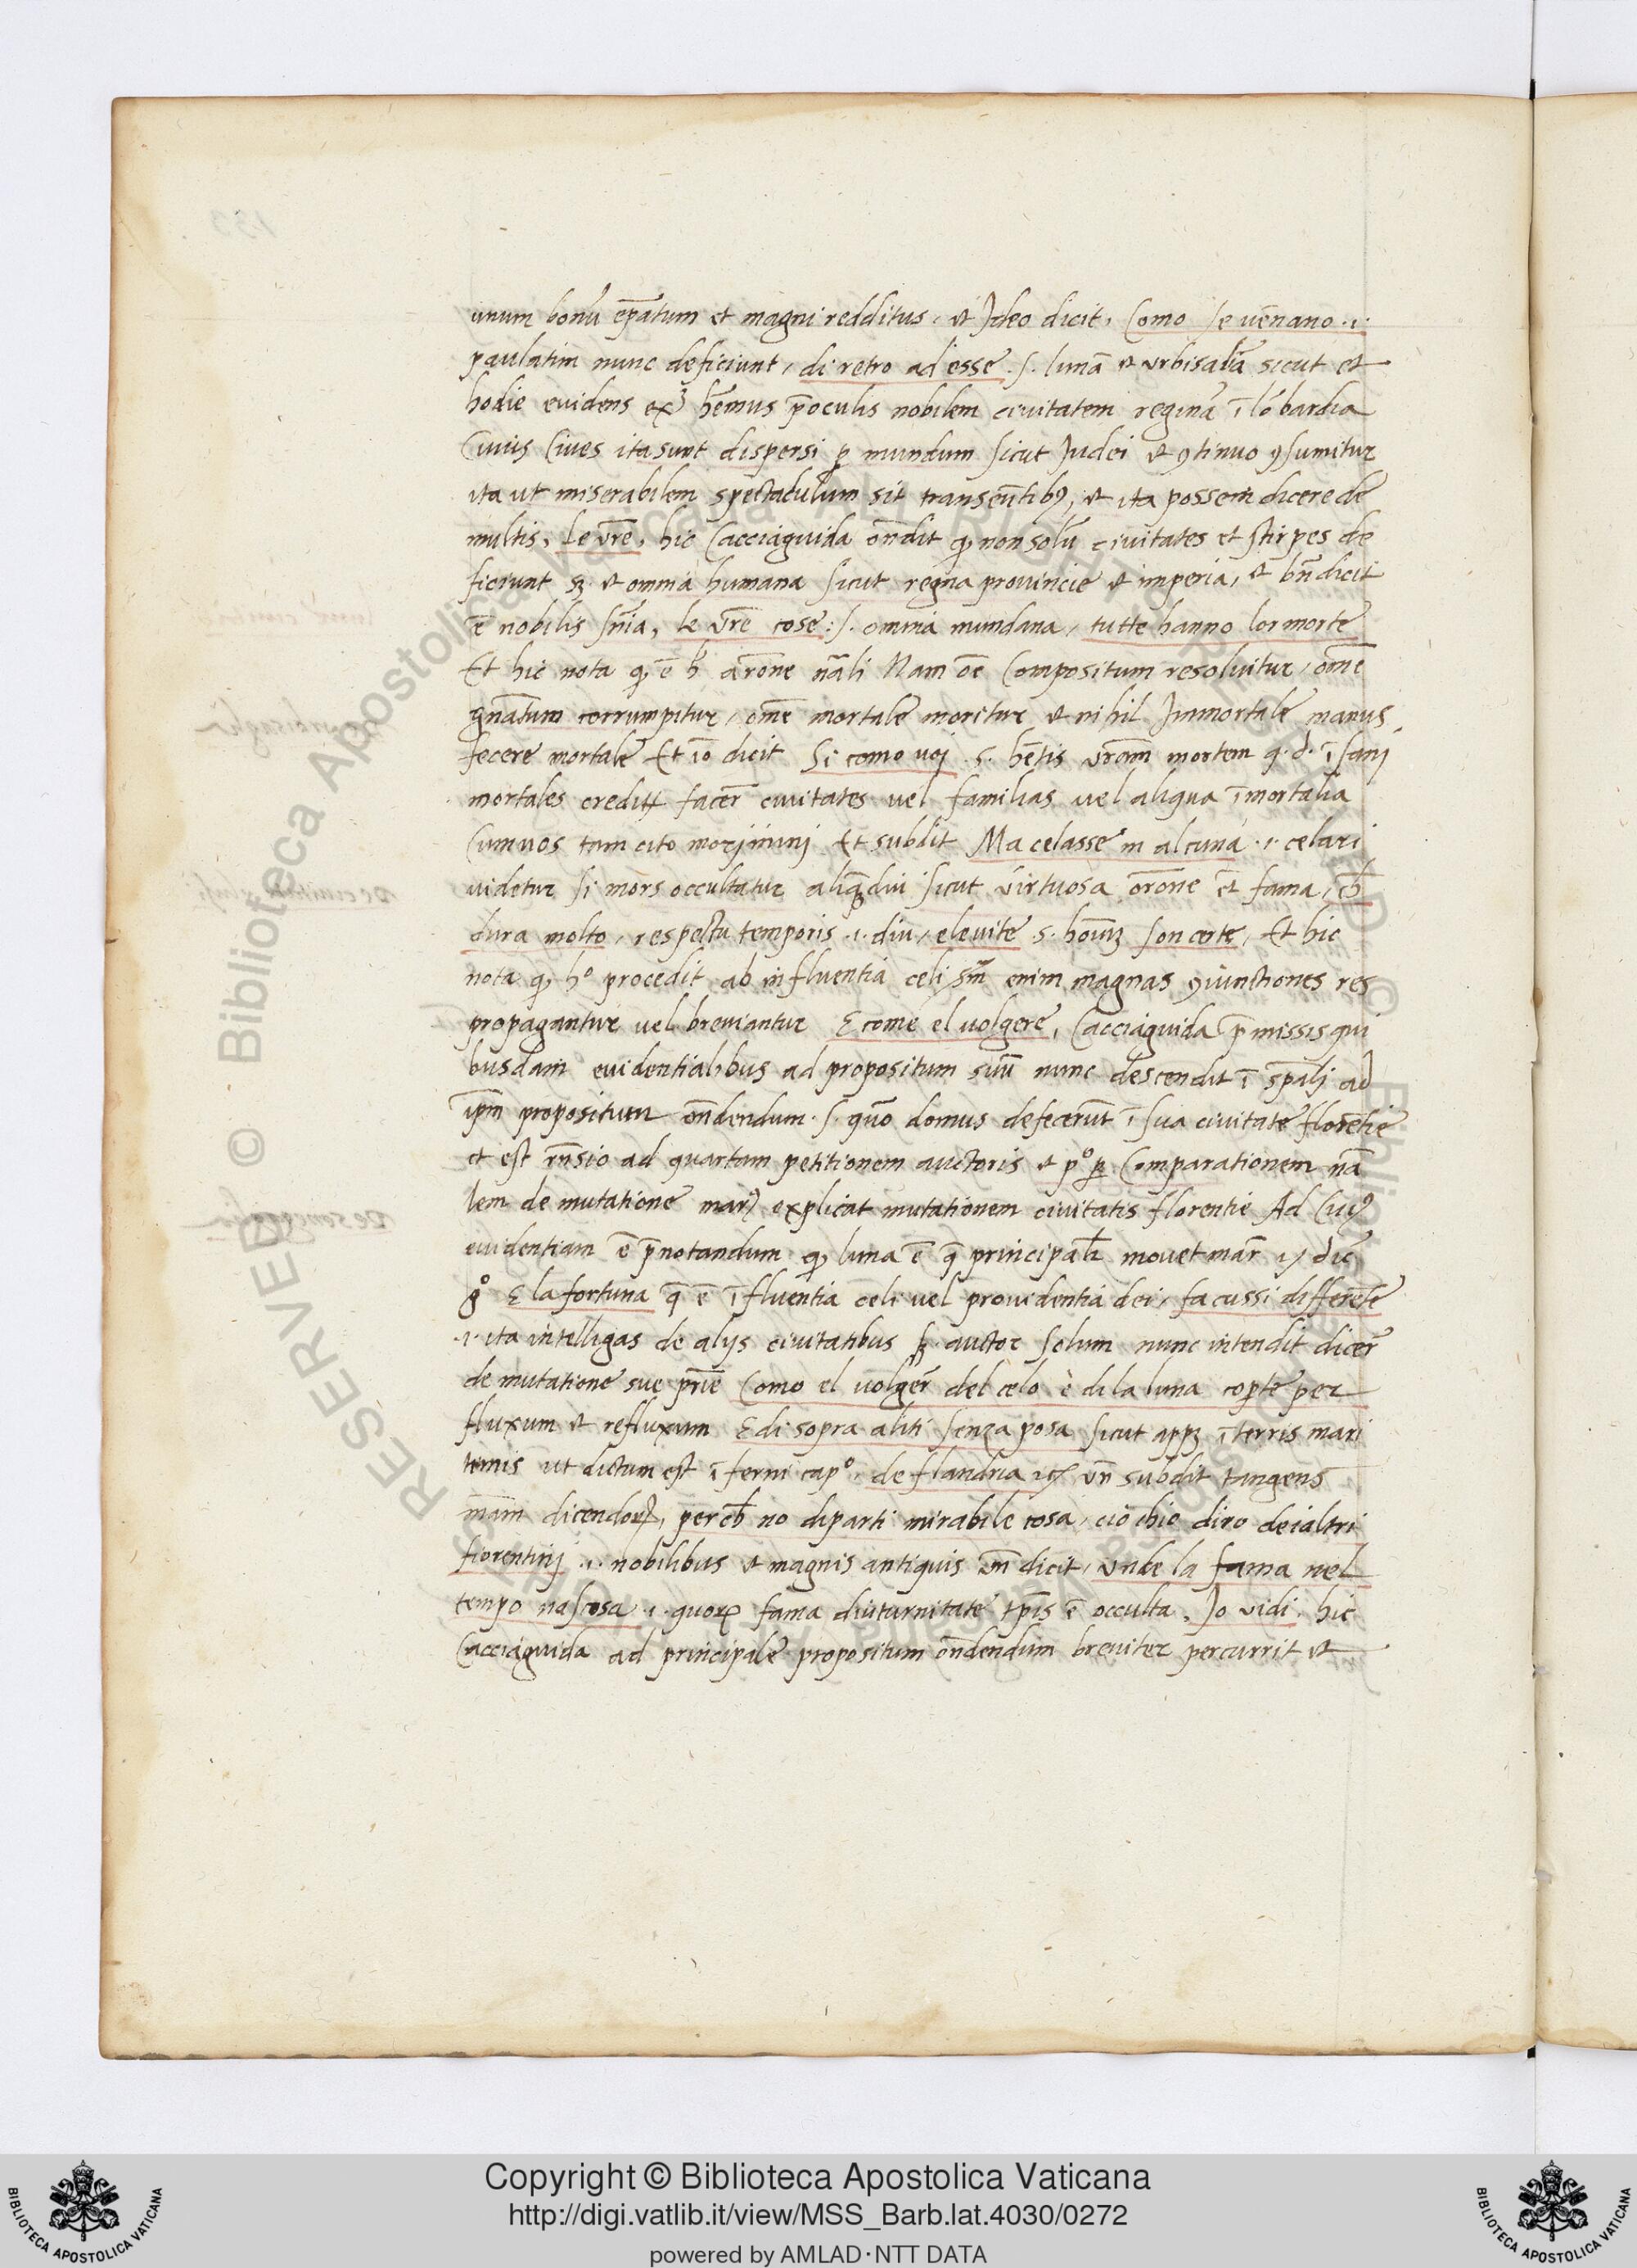 unum bonū ep̄atum et magni redditus. et Ideo dicit. Como se uēnano .i.
paulatim nunc deficiunt, di retro ad esse .s. lunā et vrbisaliā sicut et
hodie euidens ex̄ hēmus p̄oculis nobilem ciuitatem reginā ī lōbardia
Cuius Ciues ita sunt dispersi ꝑ mundum sicut Judei et ꝯtinuo ꝯsumitur
ita ut miserabilem spectaculum sit transeūtibꝫ, et ita possem dicere de
multis, Le vr̄e, hic Cacciaguida ōndit ꝙ non solū ciuitates et stirpes de
ficiunt sꝫ et omnia humana sicut regna prouincie et imperia, et bn̄ dicit
ē nobilis sn̄ia, le vr̄e cose :s. omnia mundana, tutte hanno lor morte
Et hic nota ꝙ ē h arōne nāli Nam oē Compositum resoluitur, omē
gn̄atum corrumpitur, omē mortale moritur et nihil Immortale manus
fecere mortale Et iō dicit Si como uoj .s. hētis vr̄am mortem q.d. īsanj
mortales credit facer̄ ciuitates uel familias uel aliqua īmortalia
Cum uos tam cito morjiminj Et subdit Ma celasse in alcuna .i. celari
uidetur si mors occultatur aliq̄diu sicut virtuosa orōne et fama, ch̄
dura molto, respectu temporis .i. diu, e le uite .s. hoīuꝫ son corte, Et hic
nota ꝙ hº procedit ab influentia celi sm̄ enim magnas ꝯiunctiones res
propagantur uel breuiantur E come el uolgere, Cacciaguida p̄missis qui
busdam euidentialibus ad propositum suū nunc descendit ī sp̄alj ad
ip̄m propositum ōndendum .s. quō domus defecerūt ī sua ciuitate florētie
et est rn̄sio ad quartam petitionem auctoris et pº ꝑ Comparationem nā
lem de mutatione mar explicat mutationem ciuitatis florentie Ad Cuiꝰ
euidentiam ē p̄notandum ꝙ luna ē q̄ principalr̄ mouet mar̄ dic̄
gº E la fortuna q̄ ē īfluentia celi uel prouidentia dei, fa cussi differēte
.i. ita intelligas de alijs ciuitatibus sꝫ auctor solum nunc intendit dicer̄
de mutatione sue pr̄ie Como el uolger̄ del celo è di la luna copre per
fluxum et refluxum E di sopra aliti senza posa sicut appꝫ ī terris mari
timis ut dictum est īferni capº. de flandria vn̄ subdit tangens
mām dicendoꝝ, perch̄ no di parti mirabile cosa, ciò chio diro de i altri
fiorentinj .i. nobilibus et magnis antiquis vn̄ dicit, vnde la fama nel
tempo nascosa .i. quoꝝ fama diuturnitate tp̄is ē occulta, Jo vidi. hic
Cacciaguida ad principale propositum ōndendum breuiter percurrit et
Copyright © Biblioteca Apostolica Vaticana
http://digi.vatlib.it/view/MSS_Barb.lat.4030/0272
powered by AMLAD·NTT DATA